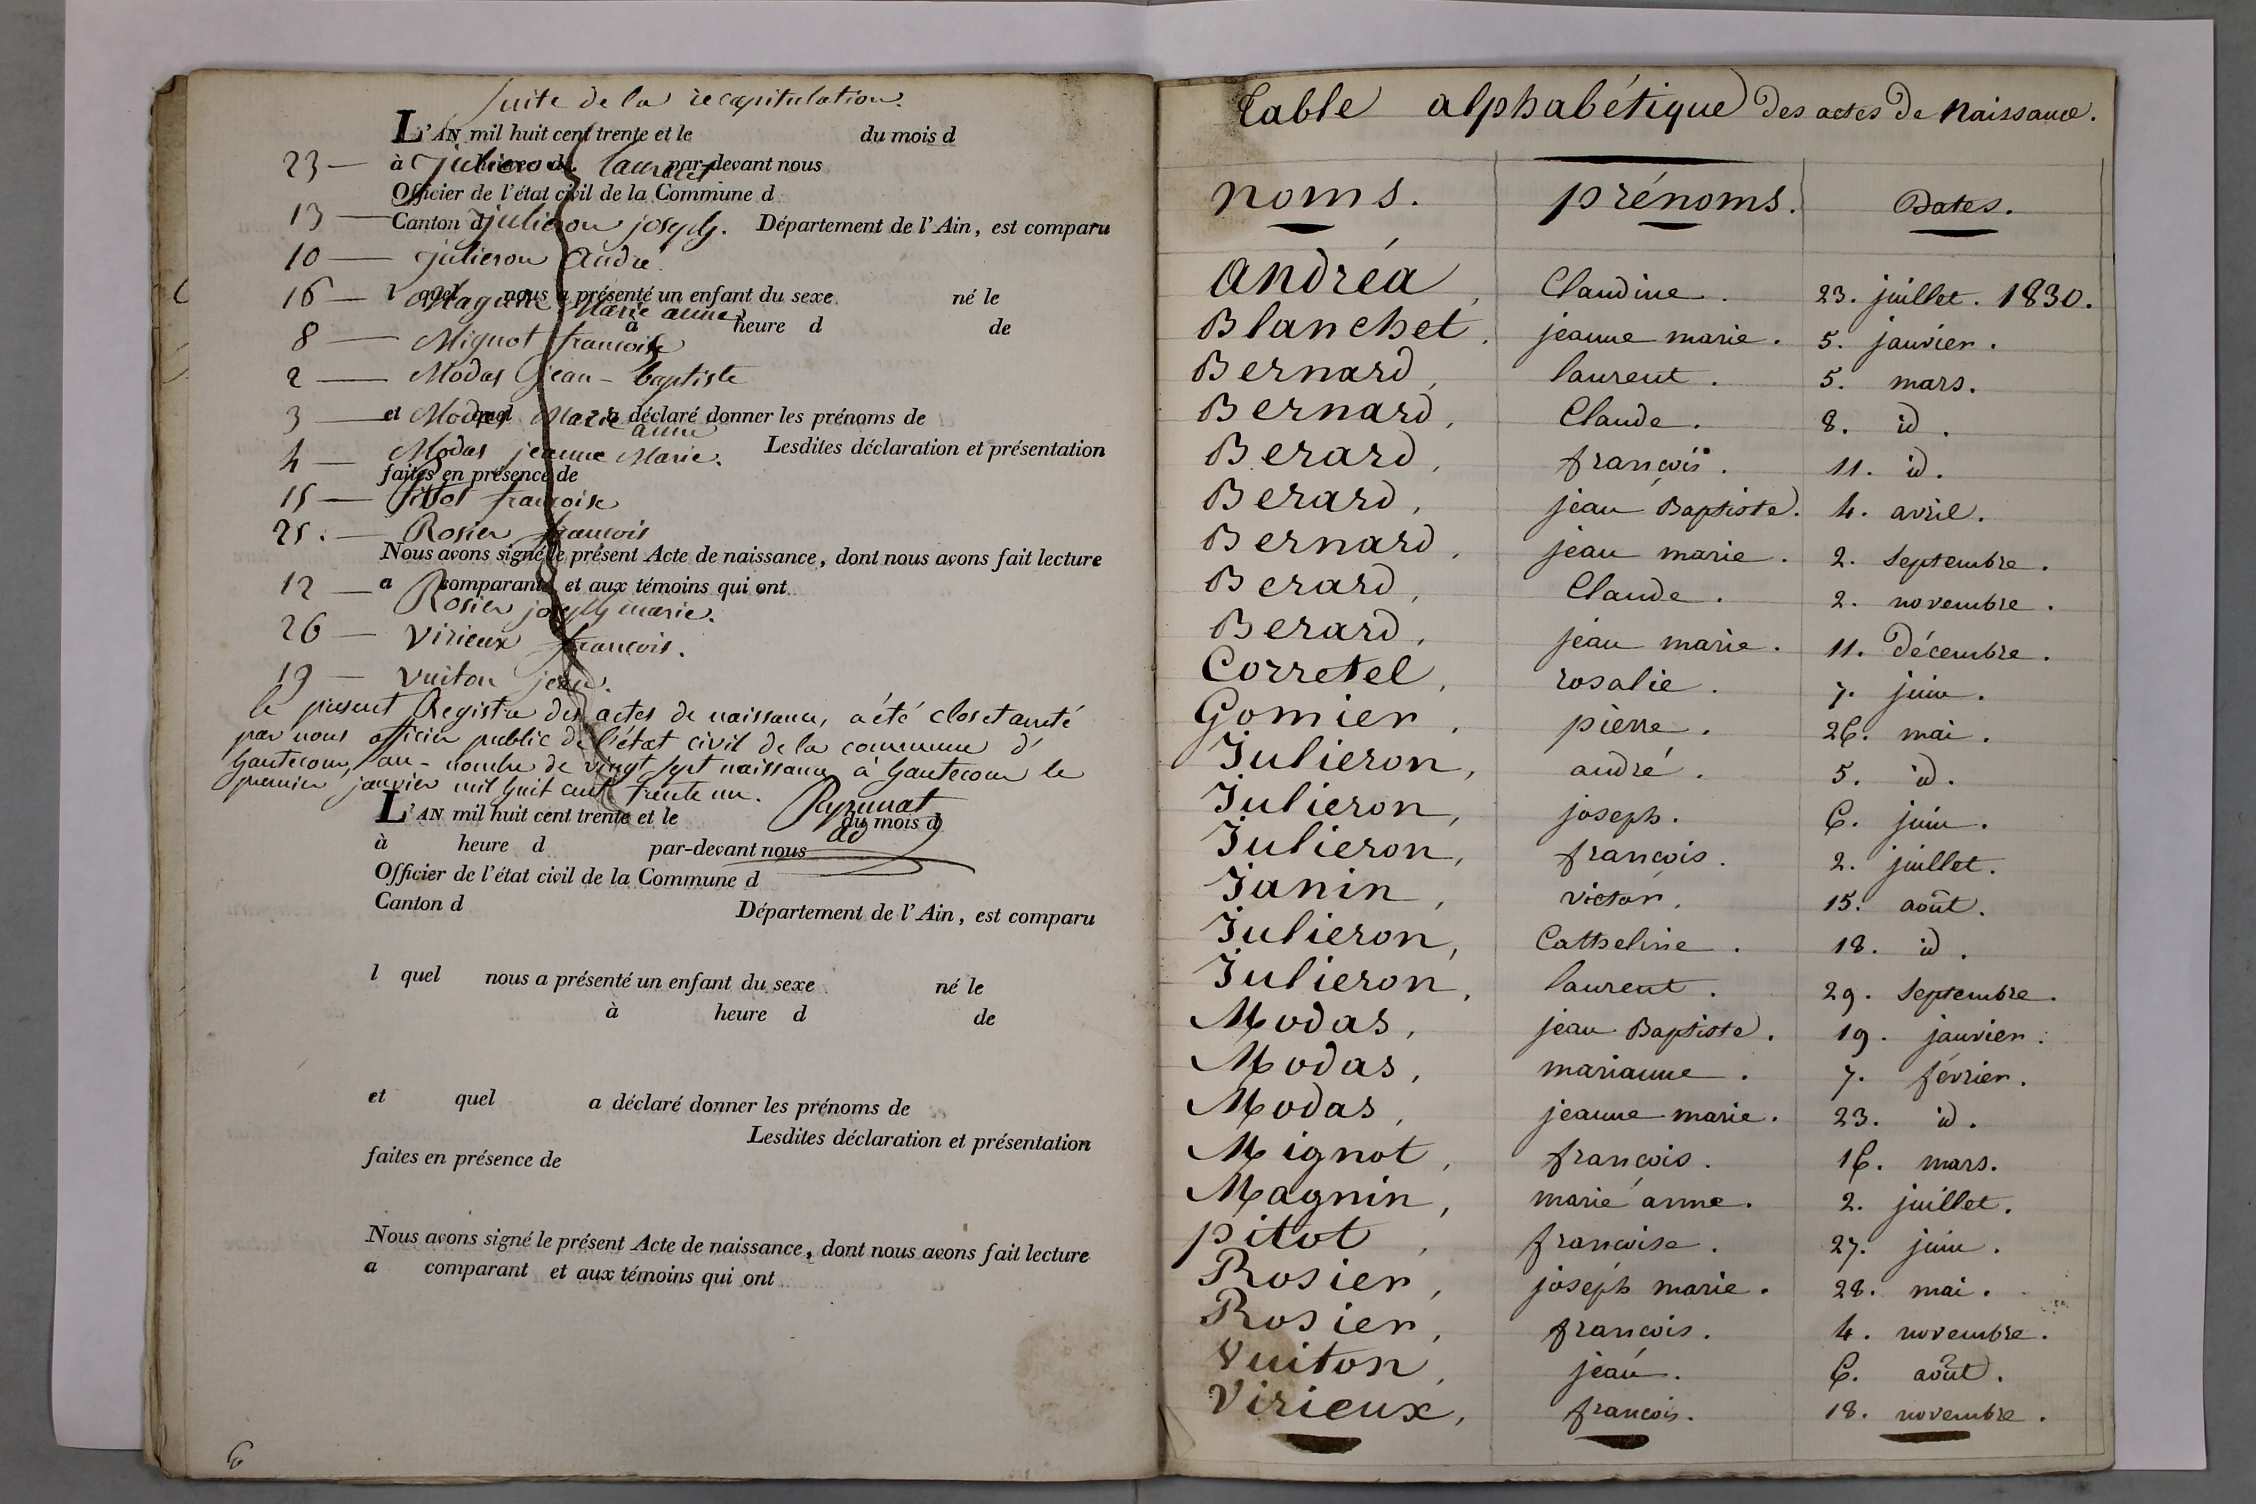 Suite de la recapitulation.
L'AN mil huit cent trente et le du mois d
23 — julieron laurent
à heure d par-devant nous
Officier de l'état civil de la Commune d
13 — julieron joseph.
Canton d Département de l'Ain, est comparu
10 — julieron andré
16 — Magnin Marie anne
l quel nous a présenté un enfant du sexe né le
à heure d de
8 — Mignot francois
2 — Modas jean-baptiste
3 — Modas Marie anne
et quel a déclaré donner les prénoms de
4 — Modas jeanne Marie.
Lesdites déclaration et présentation
faites en présence de
15 — pitot francoise
25. — Rosier francois
Nous avons signé le présent Acte de naissance, dont nous avons fait lecture
a comparant et aux témoins qui ont
12 — Rosier joseph marie.
26 — Virieux francois.
19 — Vuiton jean.
le présent Registre des actes de naissance, a été clos et arreté
par nous officier public de l'état civil de la commune d'
hautecour, au-nombre de vingt sept naissance à hautecour le
premier janvier mil huit cent trente un.
L'AN mil huit cent trente et le du mois d
à heure d par-devant nous
Officier de l'état civil de la Commune d
Canton d Département de l'Ain, est comparu
l quel nous a présenté un enfant du sexe né le
à heure d de
et quel a déclaré donner les prénoms de
Lesdites déclaration et présentation
faites en présence de
Nous avons signé le présent Acte de naissance, dont nous avons fait lecture
a comparant et aux témoins qui ont
6
Table alphabétique des actes de Naissance.
noms. prénoms. Dates.
Andréa, Claudine. 23. juillet. 1830.
Blanchet, jeanne marie. 5. janvier.
Bernard, laurent. 5. mars.
Bernard, Claude. 8. id.
Berard, françois. 11. id.
Berard, jean Baptiste. 4. avril.
Bernard, jean marie. 2. Septembre.
Berard, Claude. 2. novembre.
Berard, jean marie. 11. Décembre.
Corretel, rosalie. 7. juin.
Gomier, pierre. 26. mai.
Julieron, andré. 5. id.
Julieron, joseph. 6. juin.
Julieron, françois. 2. juillet.
Janin, victor. 15. août.
Julieron, Cattheline. 18. id.
Julieron, laurent. 29. Septembre.
Modas, jean Baptiste. 19. janvier.
Modas, marianne. 7. février.
Modas, jeanne marie. 23. id.
Mignot, françois. 16. mars.
Magnin, marie anne. 2. juillet.
pitot, francoise. 27. juin.
Rosier, joseph marie. 28. mai.
Rosier, francois. 4. novembre.
Vuiton, jean. 6. août.
Virieux, francois. 18. novembre.